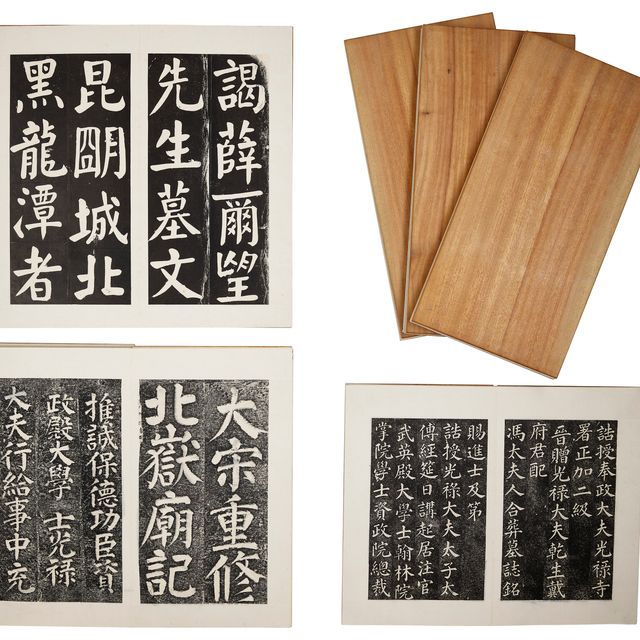 謁薛爾望
先生墓文
昆朙城北
黑龍潭者
大宋重修
北嶽廟記
推誠保德功臣資
政殿大學士光禄
大夫行給事中充
誥授奉政大夫光祿寺
署正加二級
晉贈光祿大夫乾生戴
府君配
馮太夫人合葬墓誌銘
賜進士及第
誥授光祿大夫太子太
傅經筵日講起居注官
武英殿大學士翰林院
掌院學士資政院總裁